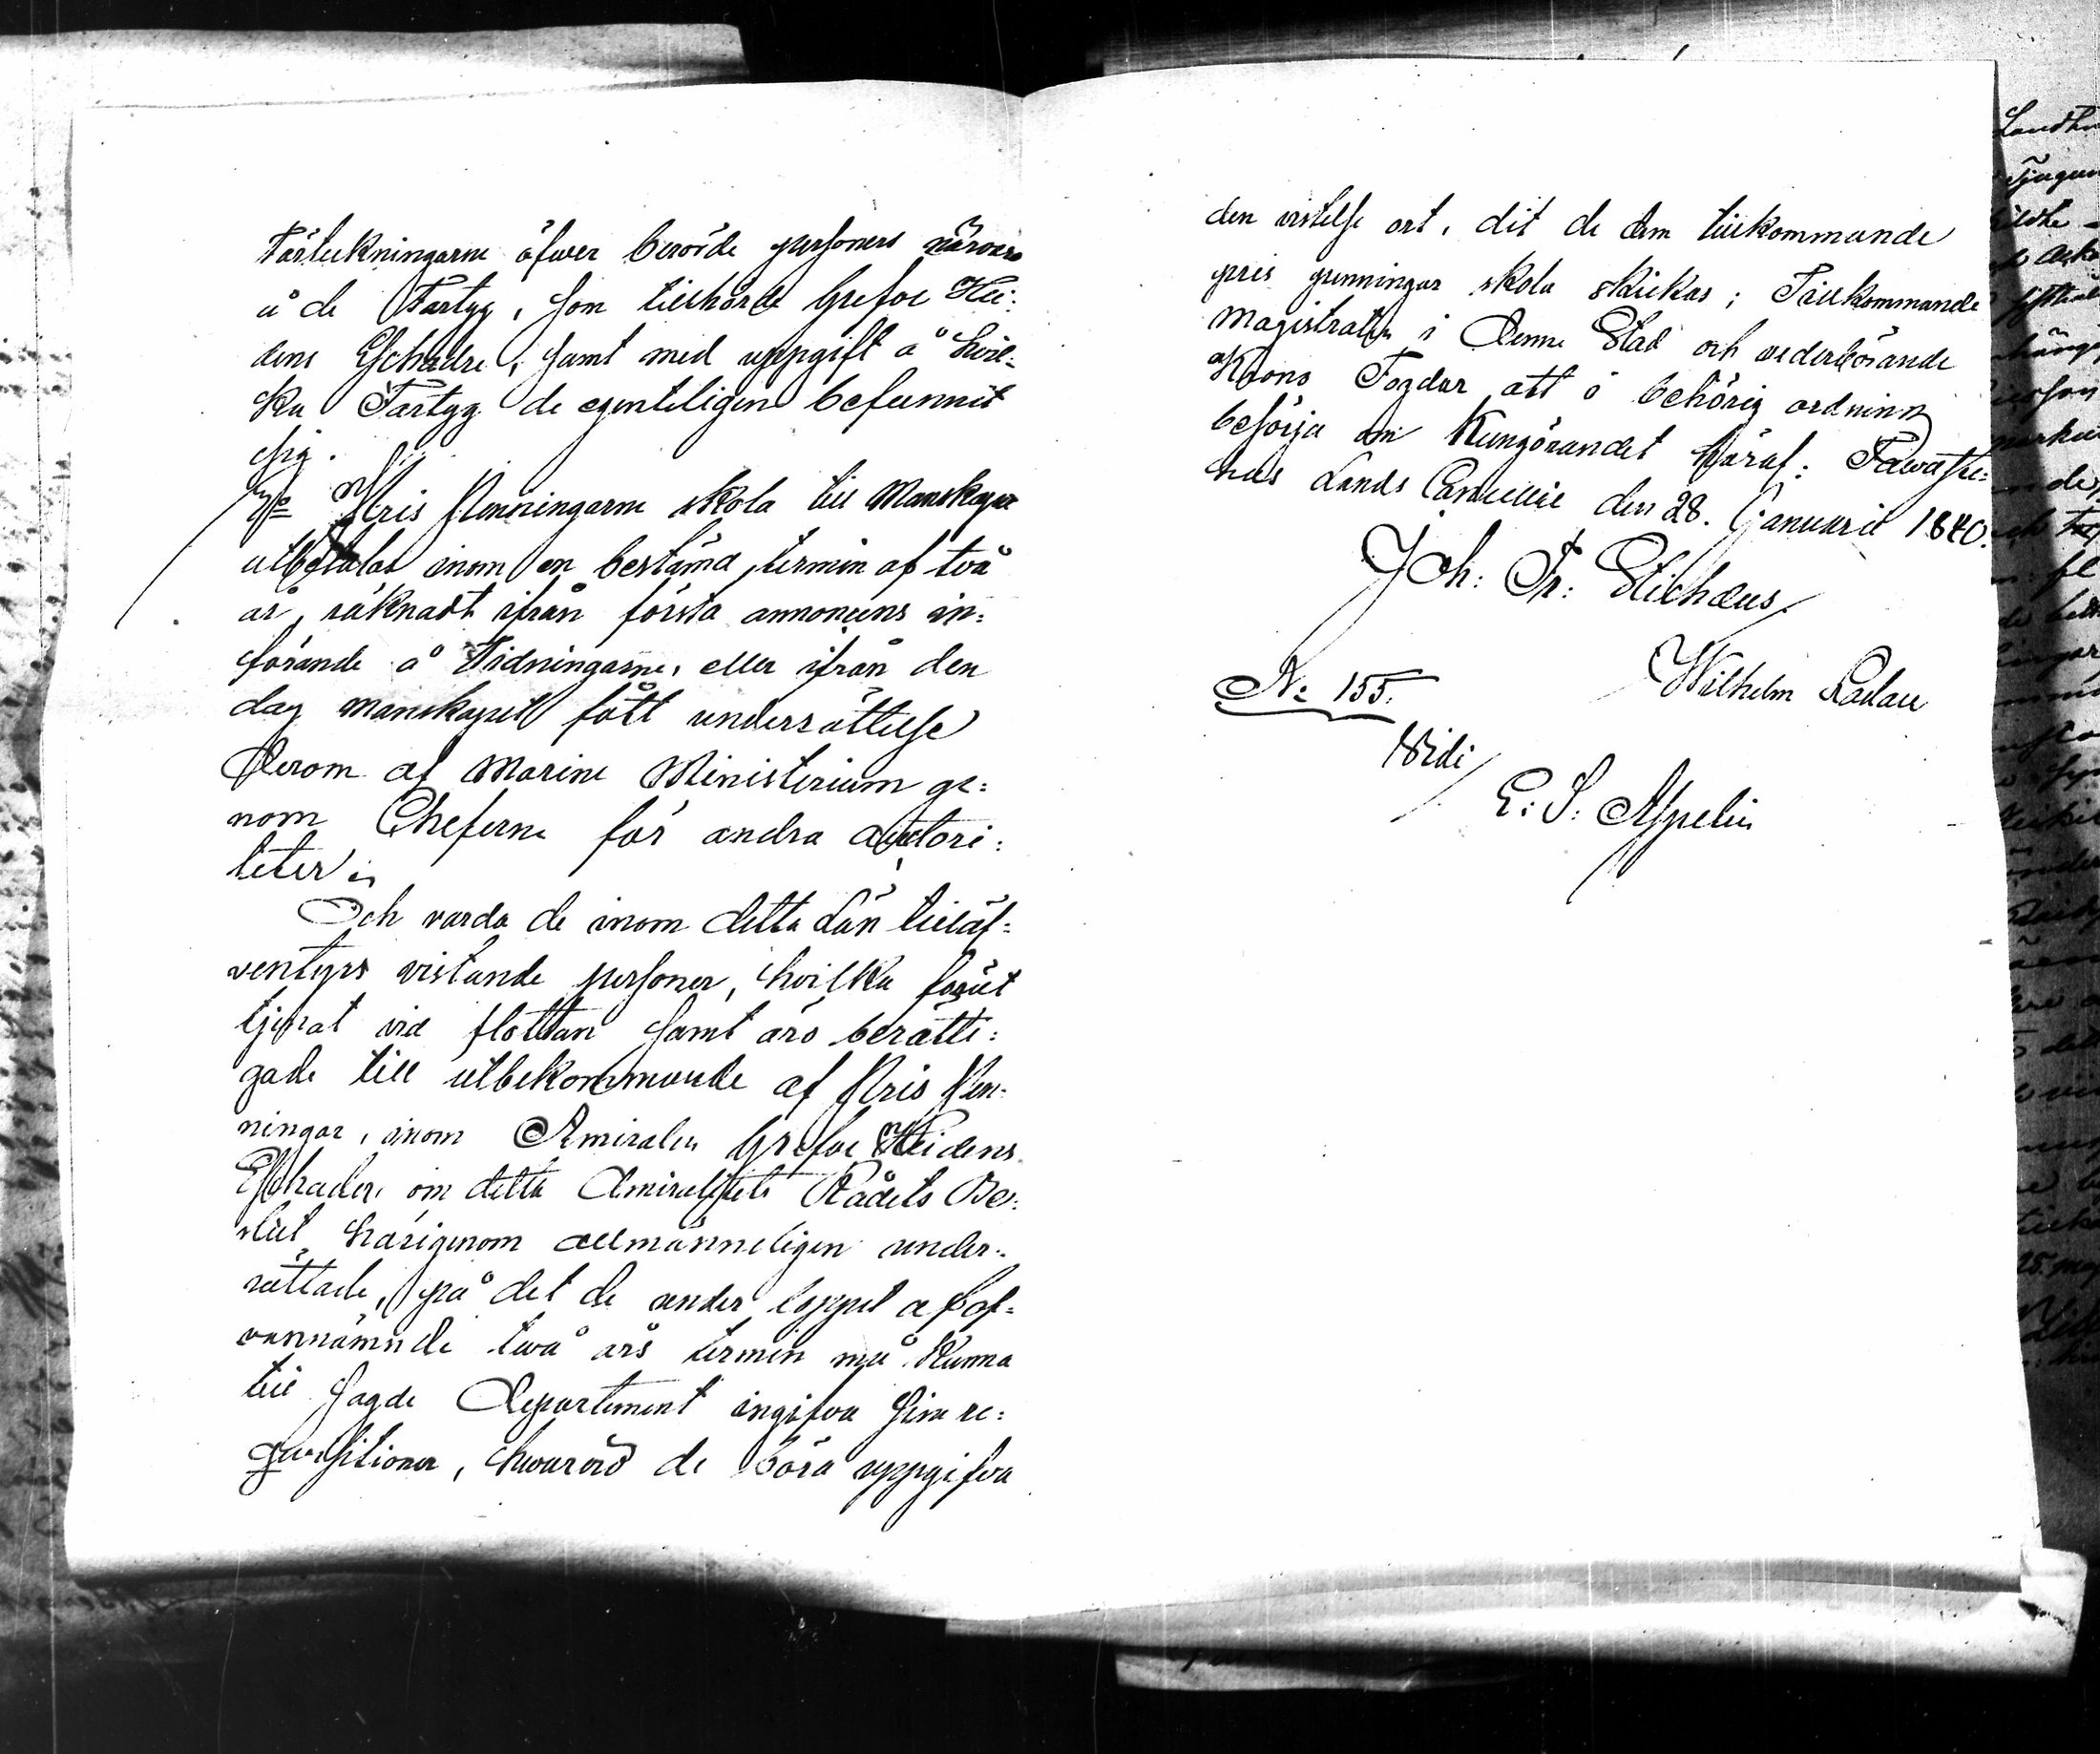 Förteckningarne öfwer berörde personers närvaro
å de Fartyg, som tillhörde Grefve Hei-
dens Eschadre, samt med uppgift å hvil-
ka Fartyg de egenteligen befunnit
sig.
7:o Pris Penningarne skola till Manskapet
utbetalas inom en bestämd termin af två
år, räknadt ifrån första annoncens in-
förande å Tidningarne, eller ifrån den
dag manskapet fått underrättelse
derom af Marine Ministerium ge-
nom Cheferne för andra autori-
teter.
Och varda de inom detta Län till äf-
ventyrs vistande personer, hvilka förut
tjenat vid flottan samt äro berätti-
gade till utbekommande af Pris Pen-
ningar, inom Amiralen Grefve Heidens
Eschader, om detta Amiralitets Rådets Be-
slut härigenom allmänneligen under-
rättade, på det de under loppet af of-
vannämnde twå års termin må kunna
till sagde Departement ingifva sina re-
quisitioner, hwarvid de böra uppgifva
den vistelse ort, dit de dem tillkommande
pris penningar skola skickas; Tillkommande
Magistraten i denna Stad och vederbörande
Krono Fogdar att i behörig ordning
besörja om Kungörandet häraf. Tawaste-
hus Lands Cancellie den 28. Januarii 1840.
Joh: Fr: Stichæus
Wilhelm
No 155.
Vidi
E: S: Appelin